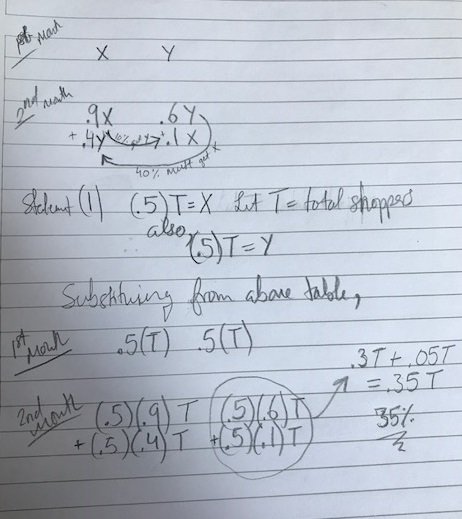 1st month
X Y
2nd month
.9X .6Y
+ .4Y 10% get Y + .1X
40% must get X
Statement (1) (.5)T = X Let T = total shoppers
also,
(.5)T = Y
Substituting from above table,
1st month .5(T) .5(T)
.3T + .05T
= .35T
2nd month (.5)(.9)T (.5)(.6)T
35%
+ (.5)(.4)T + (.5)(.1)T